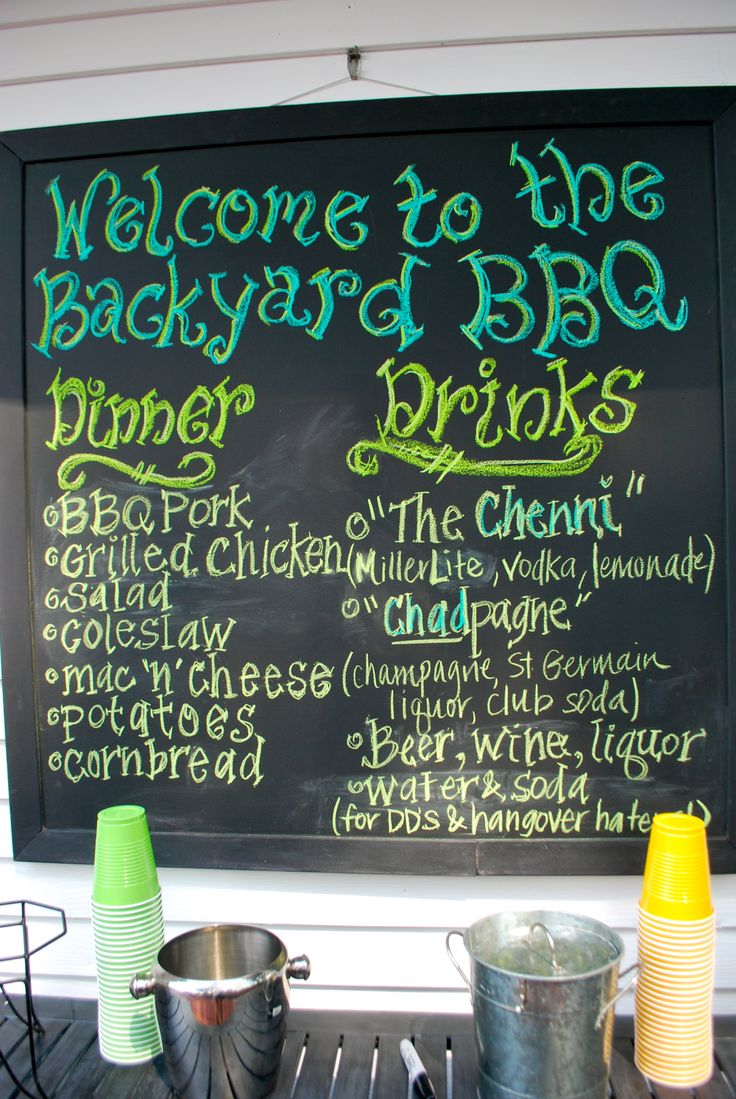 Welcome to the
Backyard BBQ
Dinner
BBQ Pork
Grilled Chicken
Salad
Coleslaw
mac 'n' cheese
potatoes
cornbread
Drinks
"The Chenni"
(Miller Lite, vodka, lemonade)
"Chadpagne"
(champagne, St Germain
liquor, club soda)
Beer, wine, liquor
water & soda
(for DD's & hangover